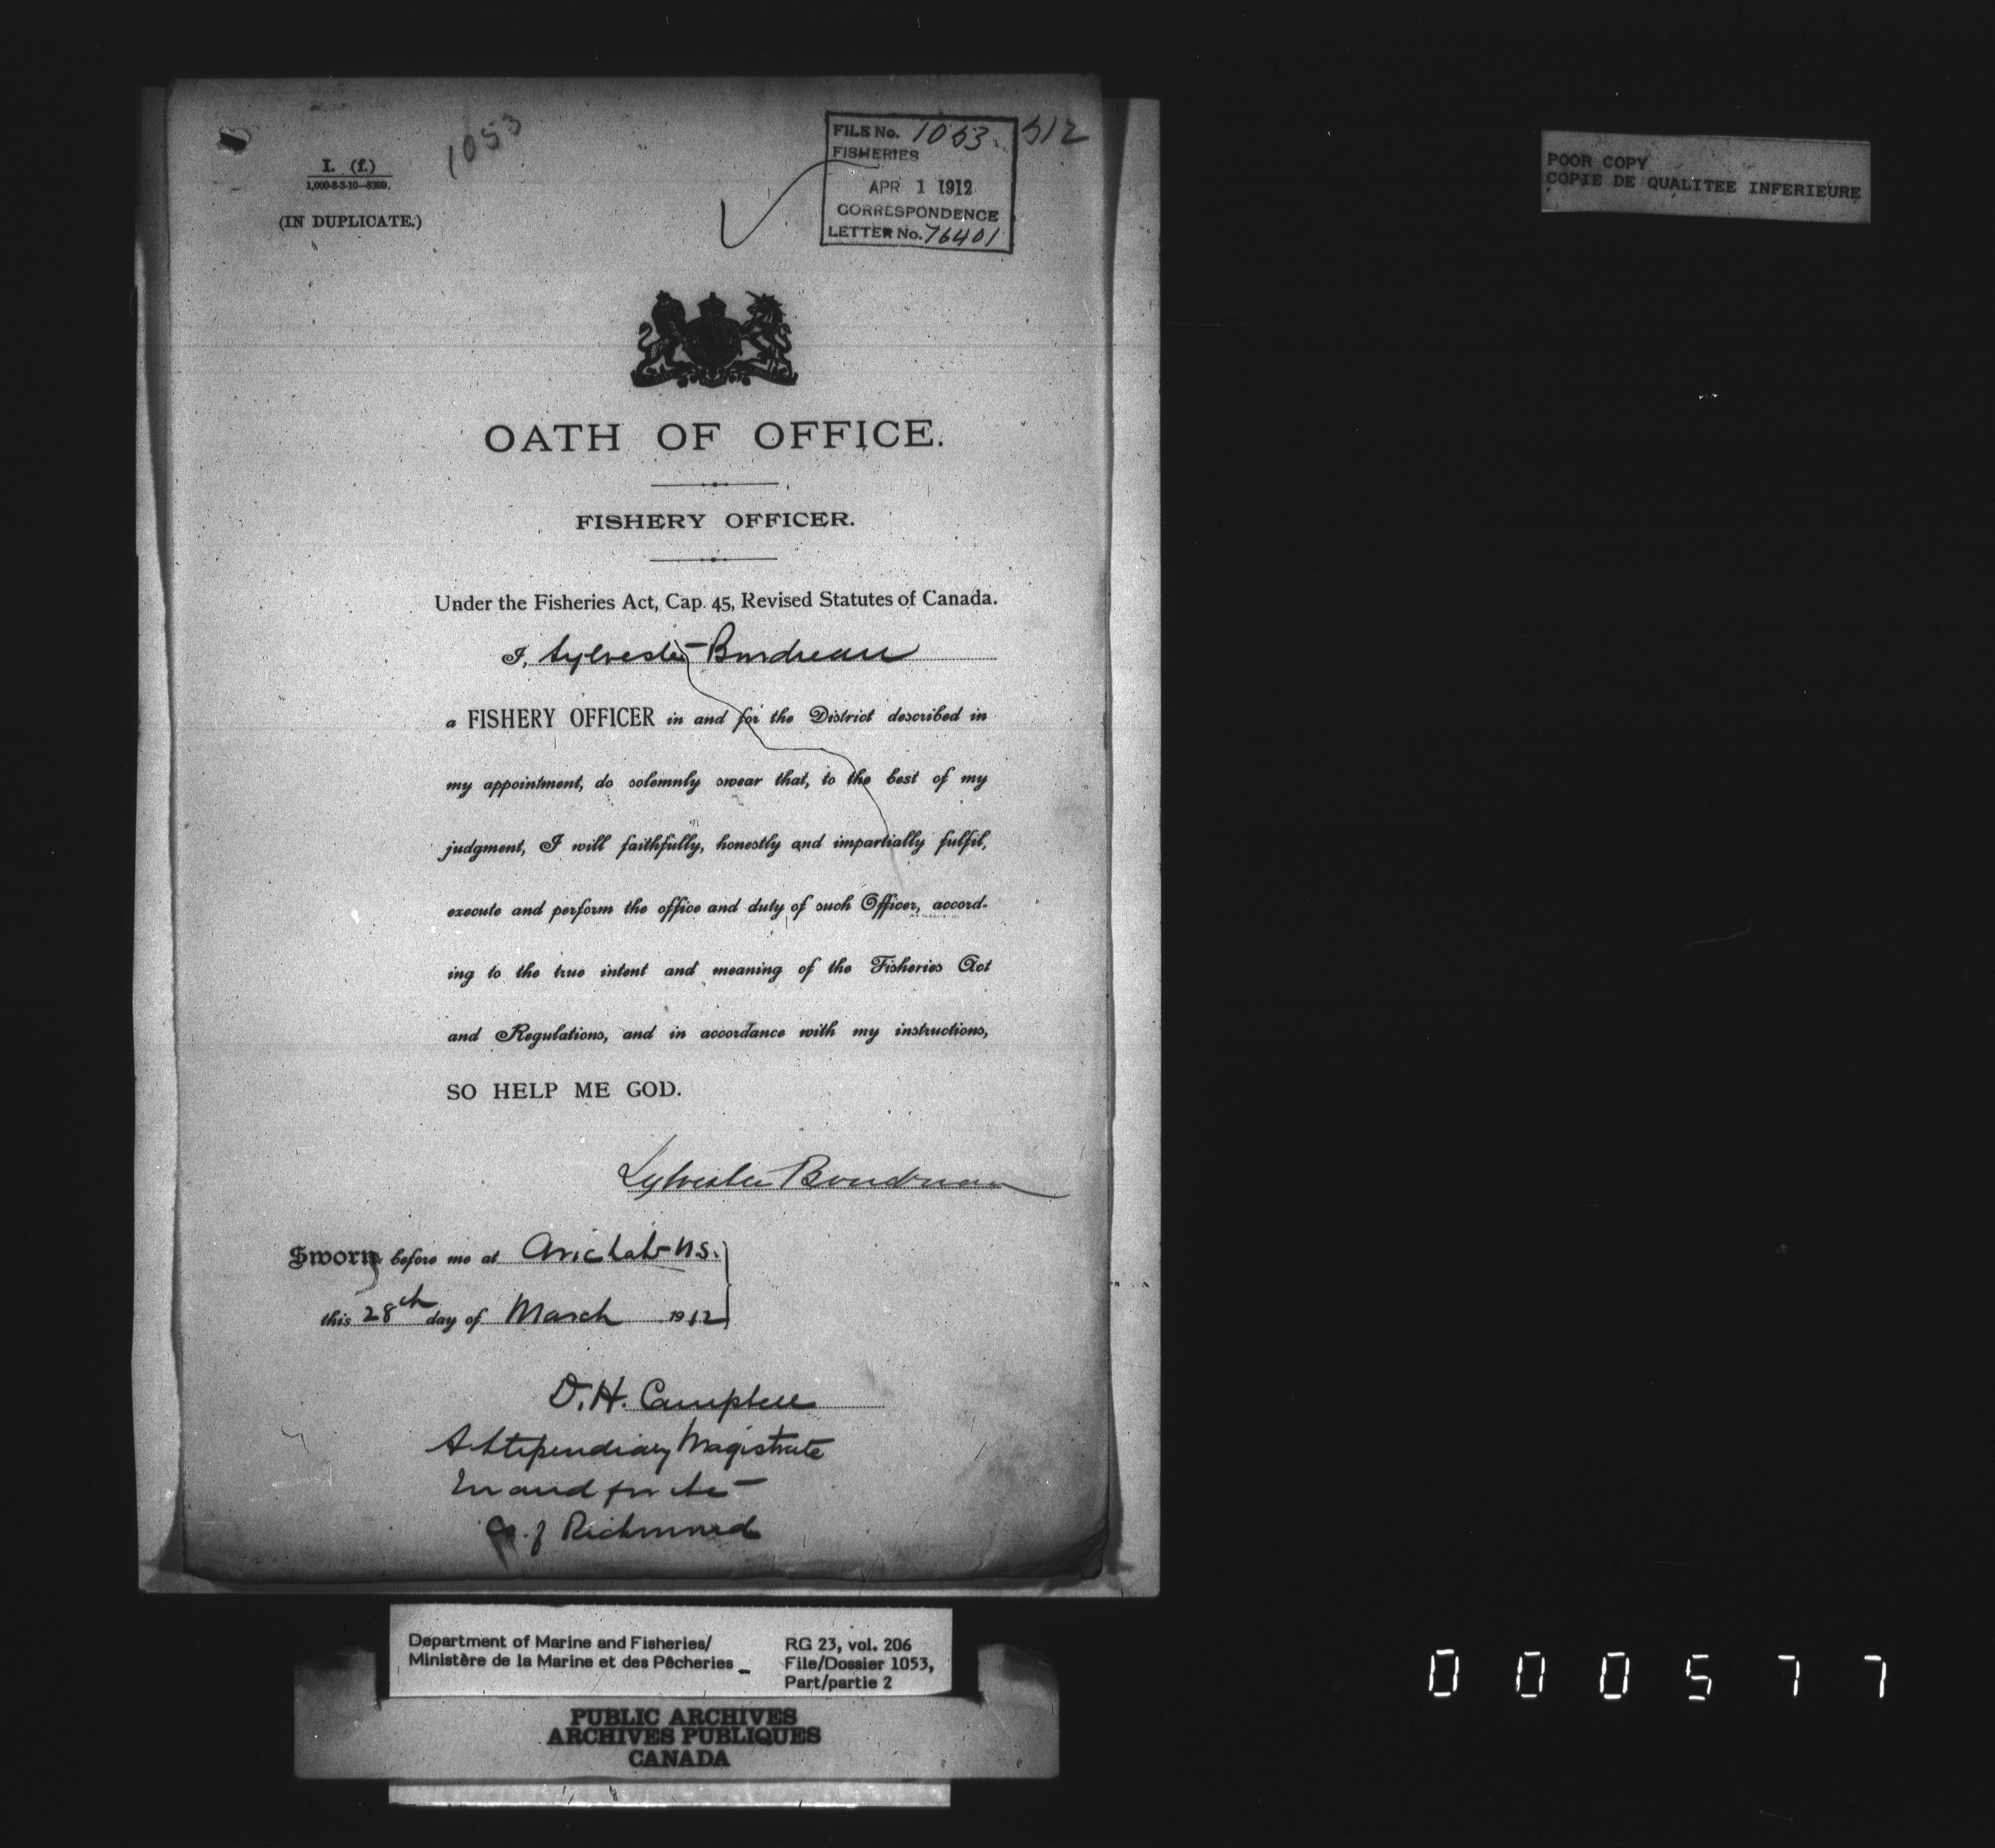 1053
FILE No. 1053. 312
FISHERIES
APR 1 1912
CORRESPONDENCE
LETTER No. 76401
I. (f.)
1,000-8-3-10—8399.
(IN DUPLICATE.)
POOR COPY
COPIE DE QUALITEE INFERIEURE
OATH OF OFFICE.
FISHERY OFFICER.
Under the Fisheries Act, Cap. 45, Revised Statutes of Canada.
I, Sylvester Boudreau
a FISHERY OFFICER in and for the District described in
my appointment, do solemnly swear that, to the best of my
judgment, I will faithfully, honestly and impartially fulfil,
execute and perform the office and duty of such Officer, accord-
ing to the true intent and meaning of the Fisheries Act
and Regulations, and in accordance with my instructions,
SO HELP ME GOD.
Sylvester Boudreau
Sworn before me at Arichat N.S.
this 28th day of March 1912
D. H. Campbell
A Stipendiary Magistrate
In and for the
Co. of Richmond
Department of Marine and Fisheries/
Ministère de la Marine et des Pêcheries
RG 23, vol. 206
File/Dossier 1053,
Part/partie 2
PUBLIC ARCHIVES
ARCHIVES PUBLIQUES
CANADA
000577